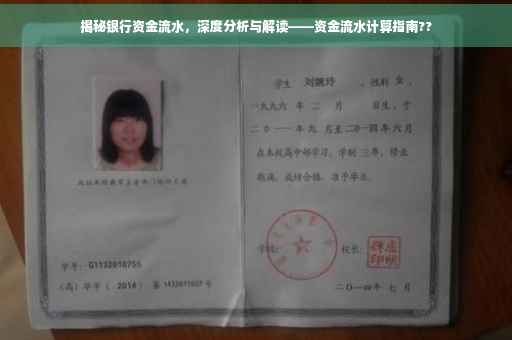 揭秘银行资金流水，深度分析与解读——资金流水计算指南??
学生 刘婉玲 ，性别 女 ，
一九九六 年 二 月 日生，于
二0一一年 九 月至 二0一四年 六 月
在本校高中部学习，学制 三年，修业
期满，成绩合格，准予毕业。
学校： 校长：
二〇一四年 七 月
学号： G1132010755
（高）毕字（ 2014 ）第 1432011027 号